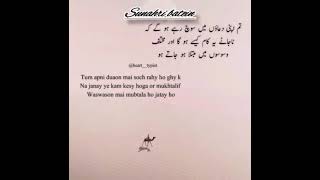 Sunahri.batain
تم اپنی دعاؤں میں سوچ رہے ہو گے کہ
ناجانے یہ کام کیسے ہو گا اور مختلف
وسوسوں میں مبتلا ہو جاتے ہو
@heart__typist
Tum apni duaon mai soch rahy ho ghy k
Na janay ye kam kesy hoga or mukhtalif
Waswason mai mubtala ho jatay ho